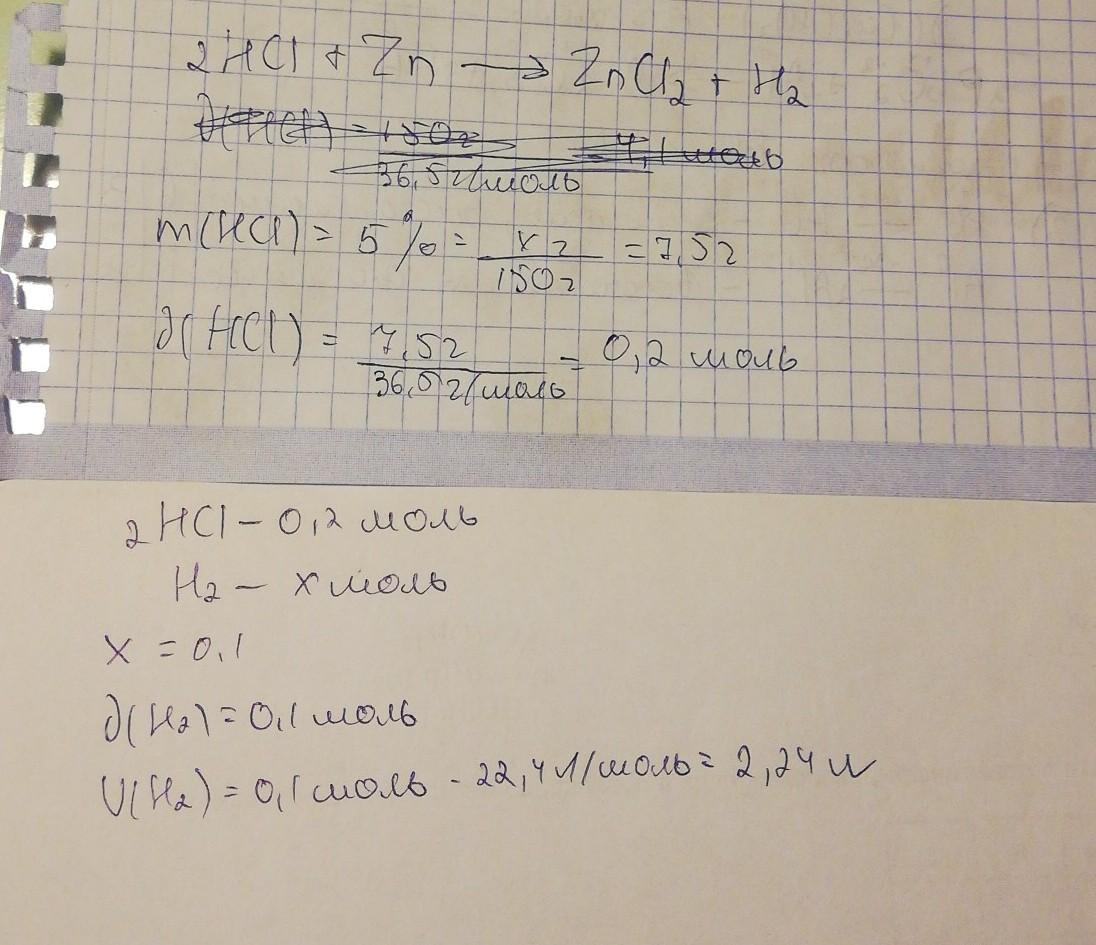 2HCl + Zn → ZnCl₂ + H₂
m(HCl) = 5% = x г / 150г = 7,5г
∂(HCl) = 7,5г / 36,5г/моль = 0,2 моль
2HCl – 0,2 моль
H₂ – x моль
x = 0,1
∂(H₂) = 0,1 моль
V(H₂) = 0,1 моль · 22,4 л/моль = 2,24 л